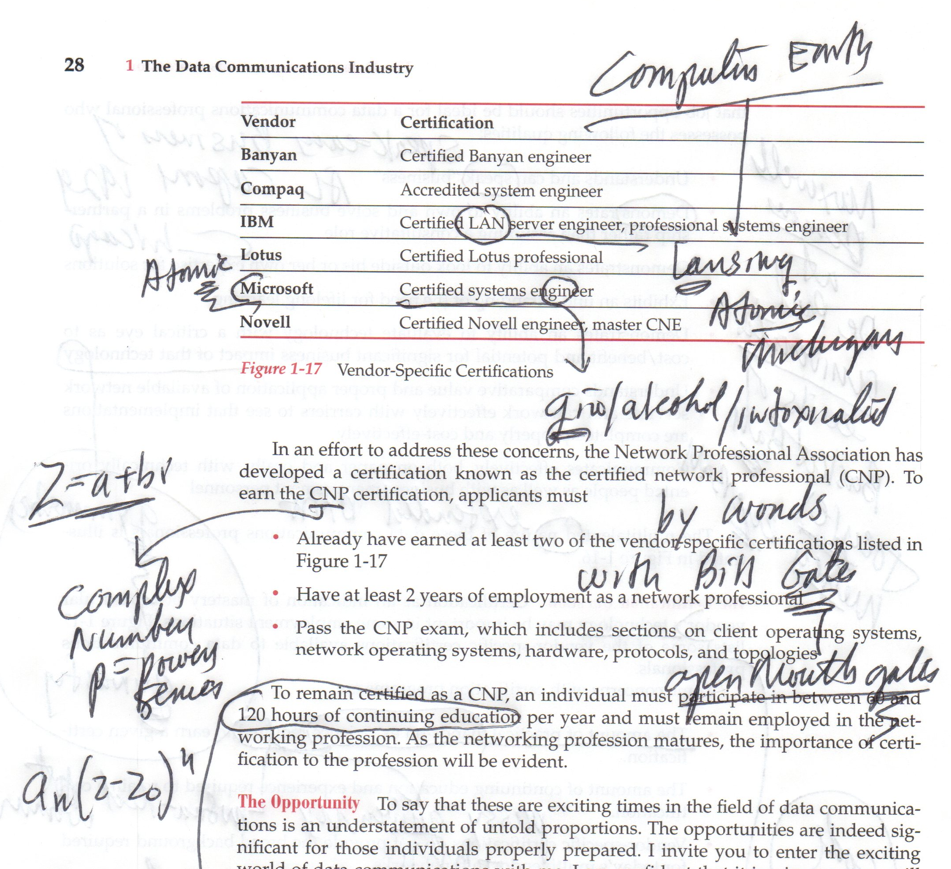 28 1 The Data Communications Industry
Computers Earth
Vendor Certification
Banyan Certified Banyan engineer
Compaq Accredited system engineer
IBM Certified LAN server engineer, professional systems engineer
Lotus Certified Lotus professional
Lansing
Atomic
Microsoft Certified systems engineer
Atomic
Novell Certified Novell engineer, master CNE
Figure 1-17 Vendor-Specific Certifications
gin/alcohol/intoxicated
In an effort to address these concerns, the Network Professional Association has
developed a certification known as the certified network professional (CNP). To
earn the CNP certification, applicants must
Z = a+bi
by words
• Already have earned at least two of the vendor-specific certifications listed in
Figure 1-17
with Bill Gates
• Have at least 2 years of employment as a network professional
Complex
Number
P = Power
Series
• Pass the CNP exam, which includes sections on client operating systems,
network operating systems, hardware, protocols, and topologies
open mouth gates
To remain certified as a CNP, an individual must participate in between 60 and
120 hours of continuing education per year and must remain employed in the net-
working profession. As the networking profession matures, the importance of certi-
fication to the profession will be evident.
an(z-z0)n
The Opportunity To say that these are exciting times in the field of data communica-
tions is an understatement of untold proportions. The opportunities are indeed sig-
nificant for those individuals properly prepared. I invite you to enter the exciting